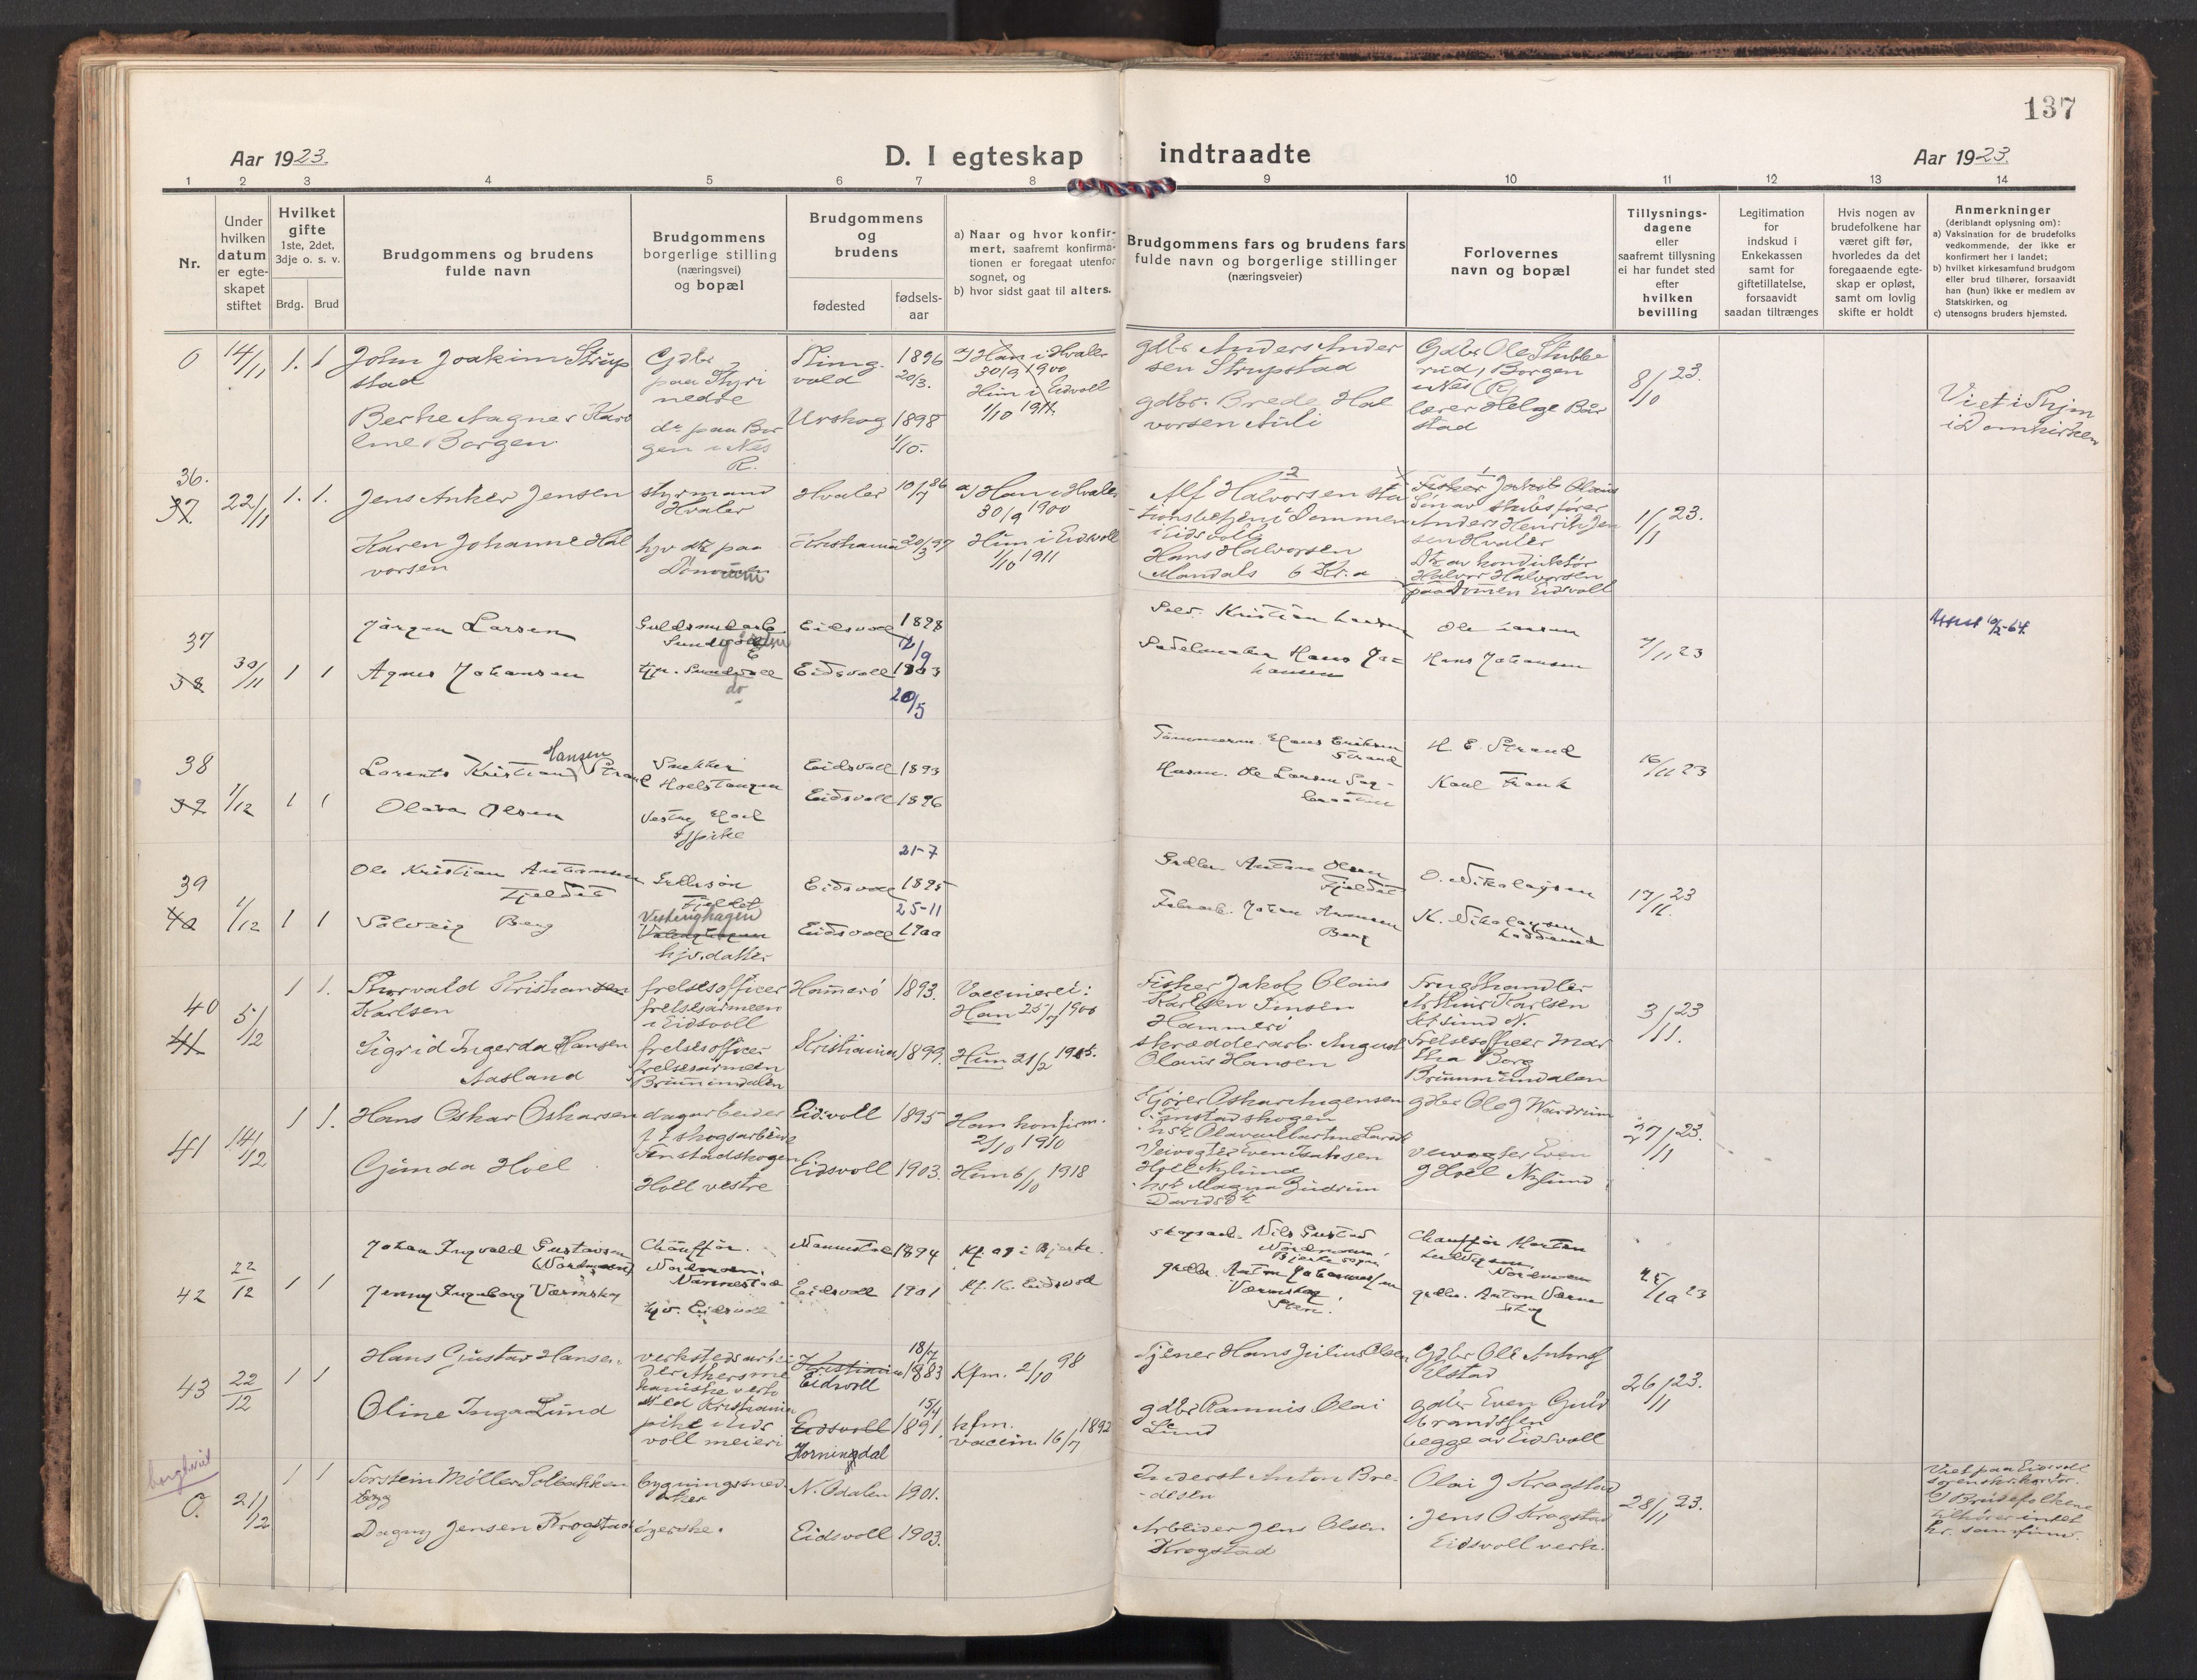 137
Aar 1923.
D. I egteskap indtraadte
Aar 1923.
1 2 3 4 5 6 7 8 9 10 11 12 13 14
Nr.
Under
hvilken
datum
er egte-
skapet
stiftet
Hvilket
gifte
1ste, 2det,
3dje o. s. v.
Brdg. Brud
Brudgommens og brudens
fulde navn
Brudgommens
borgerlige stilling
(næringsvei)
og bopæl
Brudgommens
og
brudens
fødested
fødsels-
aar
a) Naar og hvor konfir-
mert, saafremt konfirma-
tionen er foregaat utenfor
sognet, og
b) hvor sidst gaat til alters.
Brudgommens fars og brudens fars
fulde navn og borgerlige stillinger
(næringsveier)
Forlovernes
navn og bopæl
Tillysnings-
dagene
eller
saafremt tillysning
ei har fundet sted
efter
hvilken
bevilling
Legitimation
for
indskud i
Enkekassen
samt for
giftetillatelse,
forsaavidt
saadan tiltrænges
Hvis nogen av
brudefolkene har
været gift før,
hvorledes da det
foregaaende egte-
skap er opløst,
samt om lovlig
skifte er holdt
Anmerkninger
(deriblandt oplysning om):
a) Vaksination for de brudefolks
vedkommende, der ikke er
konfirmert her i landet;
b) hvilket kirkesamfund brudgom
eller brud tilhører, forsaavidt
han (hun) ikke er medlem av
Statskirken, og
c) utensogns bruders hjemsted.
0 14/11 1. 1
John Joakim Strup
stad
Berhe Aagnes Karo
line Borgen
Gdbr
paa Styri
nedre
dr paa Bor
gen i Nes
R.
vold 1896
20/3.
Urskog 1898
1/10.
a) Han i Hvaler
30/9 1900
Hun i Eidsvoll
1/10 1911
gdbr Anders Ander
sen Strupstad
gdbr. Brede Hal
vorsen Auli
Gdbr Ole Stubbe
rud, Borgen
i Nes (R)
lærer Helge Bår
stad
8/10 23.
Viet i Thjm
i Domkirken
36.
37. 22/11 1. 1.
Jens Anker Jensen
Karen Johanne Hal
vorsen
styrmand
Hvaler
hjv dtr paa
Hvaler 10/7 86
Kristiania 20/3 97
a) Han i Hvaler
30/9 1900
Hun i Eidsvoll
1/10 1911
2
Alf Halvorsen sta
tionsbetjent Dommen
i Eidsvoll
Hans Halvorsen
Mandals 6 Kr.a
1
Fisker Jakob Olaus
Søn av skibsfører
Anders Henrik Jen
sen Hvaler
Dtr av konduktør
Halvor Halvorsen
paa Dømen Eidsvoll
1/11 23.
37
38 30/11 1 1
Jørgen Larsen
Agnes Johansen
Guldsmedarb.
tjp. Sundvoll
do
Eidsvoll 1898
12/9
Eidsvoll 1903
20/5
Selv. Kristian Larsen
Sadelmaker Hans Jo-
hansen
Ole Larsen
Hans Johansen
4/11 23
Attest 10/2-64.
38
39 1/12 1 1
Hansen
Lorents Kristian Strand
Olava Olsen
Snekker
Hoelstangen
Eidsvoll 1893
Eidsvoll 1896
Tømmerm. Hans Eriksen
Strand
Husm. Ole Larsen
H. E. Strand
Karl Frank
16/11 23
39
40 1/12 1 1
Ole Kristian Antonsen
Fjeldet
Solveig Berg
Gdbrsøn
Fjeldet
Vestenghagen
hjv. datter
21-7
Eidsvoll 1895
25-11
Eidsvoll 1900
Gdbr. Anton Olsen
Fjeldet
Fabrarb. Johan Arnesen
Berg
O. Nikolaysen
K. Nikolaysen
Ladderud
17/11 23
40
41 5/12 1 1.
Thorvald Kristiansen
Karlsen
Sigrid Ingerda Hansen
Aasland
frelsesofficer
frelsesarmeen
i Eidsvoll
frelsesofficer
frelsesarmeen
Brummundalen
Hamerö 1893.
Kristiania 1899.
Vaccineret:
Han 25/7 1900
Hun 21/2 1905.
Fisker Jakob Olaus
Karlsen Finsen
Hammerö
skrædderarb. August
Olaus Hansen
Frugthandler
Arthur Karlsen
Frelsesofficer Mar
tha Borg
Brummundalen
3/11 23.
41 14/12 1 1.
Hans Oskar Oskarsen
Gunda Hoel
dagarbeider
Finstadskogen
Hoel vestre
Eidsvoll 1895
Eidsvoll 1903.
Han konfirm.
2/10 1910
Hun 6/10 1918
Kjører Oskar Jørgensen
Finstadskogen
Veivogter Even Isaksen
Hoel Nylund
hst. Magna Gudrun
Davidsdtr
gdbr Ole J Wardrum
veivogter Even
J Hoel Nylund
27/11 23.
42 22/12 1 1
Johan Ingvald Gustavsen
(Nordmoen)
Jenny Ingeborg Værnskog
Chauffør.
Nordmoen.
Nannestad
hjv. Eidsvoll
Nannestad 1894
Eidsvoll 1901
Kf. 09 i Bjerke.
Kf. 16. Eidsvoll
Skogsarb. Nils Gustav
Nordmoen,
Bjerke sogn
gdbr. Anton Johannessen
Værnskog,
Chauffør Morten
Ludvigsen
Nordmoen
gdbr. Anton Værns
skog
25/10 23
43 22/12 1 1
Hans Gustav Hansen
Oline Inga Lund
verkstedsarbei
der Akers me
kaniske verk
sted Kristiania
pike i Eids
voll meieri
18/7
Kristiania 1883
Eidsvoll
15/4
Eidsvoll 1891.
Horningdal
Kfm. 2/10 98
kfm.
vaccin. 16/7 1892
Tjener Hans Julius Olsen
gdbr Rasmus Olai
Lund
Gdbr Ole Anton
Elstad
gdbr Even Guld
brandsen
begge av Eidsvoll
26/11 23.
borgl. viet
0. 21/12 1 1
Torstein Møller Solbakken
Dagny Jensen Krogstad
bygningssned-
ker
syerske.
N. Odalen 1901.
Eidsvoll 1903.
Inderst Anton Bre-
desen
Arbeider Jens Olsen
Krogstad
Olai J Krogstad
Jens O Krogstad
Eidsvoll verk.
28/11 23.
Viet paa Eidsvoll
sorenskr. kontor.
Brudefolkene
tilhører intet
kr. samfund.